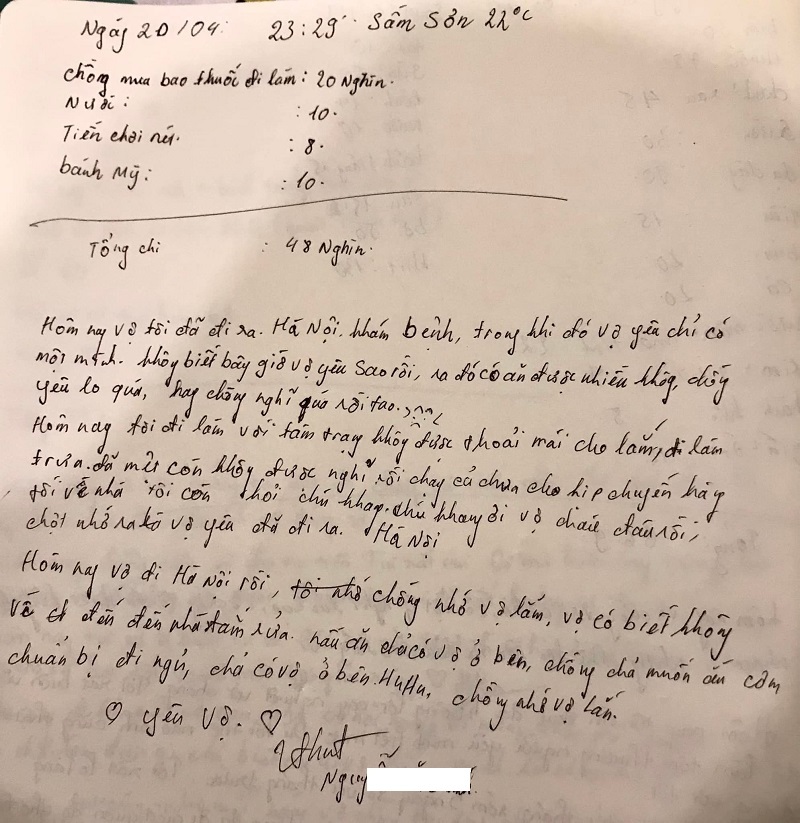 Ngày 20/04: 23:29' Sầm Sơn 22°C
chồng mua bao thuốc đi làm: 20 Nghìn.
Nước: : 10.
Tiền chơi nét. : 8.
bánh Mỹ: : 10.
Tổng chi : 48 Nghìn.
Hôm nay vợ tôi đã đi ra. Hà Nội. khám bệnh, trong khi đó vợ yêu chỉ có
một mình. không biết bây giờ vợ yêu sao rồi, ra đó có ăn được nhiều không, chồng
yêu lo quá, hay chồng nghĩ quá rồi tao.
Hôm nay tôi đi làm với tâm trạng không được thoải mái cho lắm, đi làm
trưa. đã mệt còn không được nghỉ rồi chạy cả chưa cho kịp chuyến hàng
tối về nhà tôi còn hỏi chú khang. chú khang ơi vợ cháu đâu rồi,
chợt nhớ ra là vợ yêu đã đi ra. Hà Nội
Hôm nay vợ đi Hà Nội rồi, tôi nhớ chồng nhớ vợ lắm, vợ có biết không
về đến đến nhà tắm rửa. nấu ăn chả có vợ ở bên, chồng chả muốn ăn cơm
chuẩn bị đi ngủ, chả có vợ ở bên. HuHu, chồng nhớ vợ lắm.
♡ yêu vợ. ♡
Nguyễ